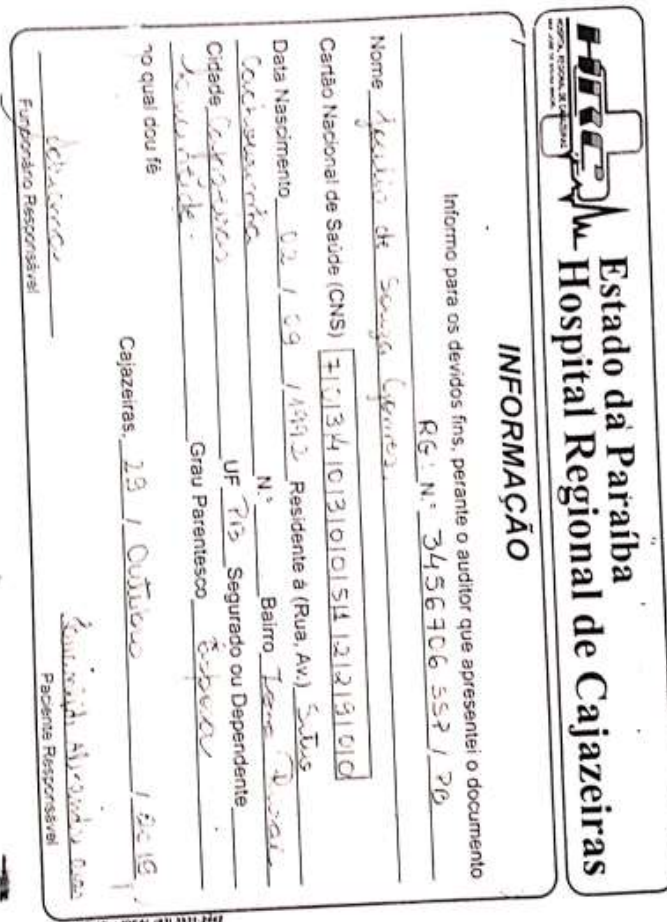 HRC
HOSPITAL REGIONAL DE CAJAZEIRAS
Estado da Paraíba
Hospital Regional de Cajazeiras
INFORMAÇÃO
Informo para os devidos fins, perante o auditor que apresentei o documento
RG: N.º 3456706 SSP / PB
Nome de Souza
Cartão Nacional de Saúde (CNS)
Data Nascimento 02 / 09 / 1992 Residente à (Rua, Av.) Sítio
Cachoeirinha N.º Bairro Zona Rural
Cidade Cajazeiras UF PB Segurado ou Dependente
Grau Parentesco Esposa
no qual dou fé
Cajazeiras, 29 / Outubro / 2019
Funcionário Responsável
Paciente Responsável